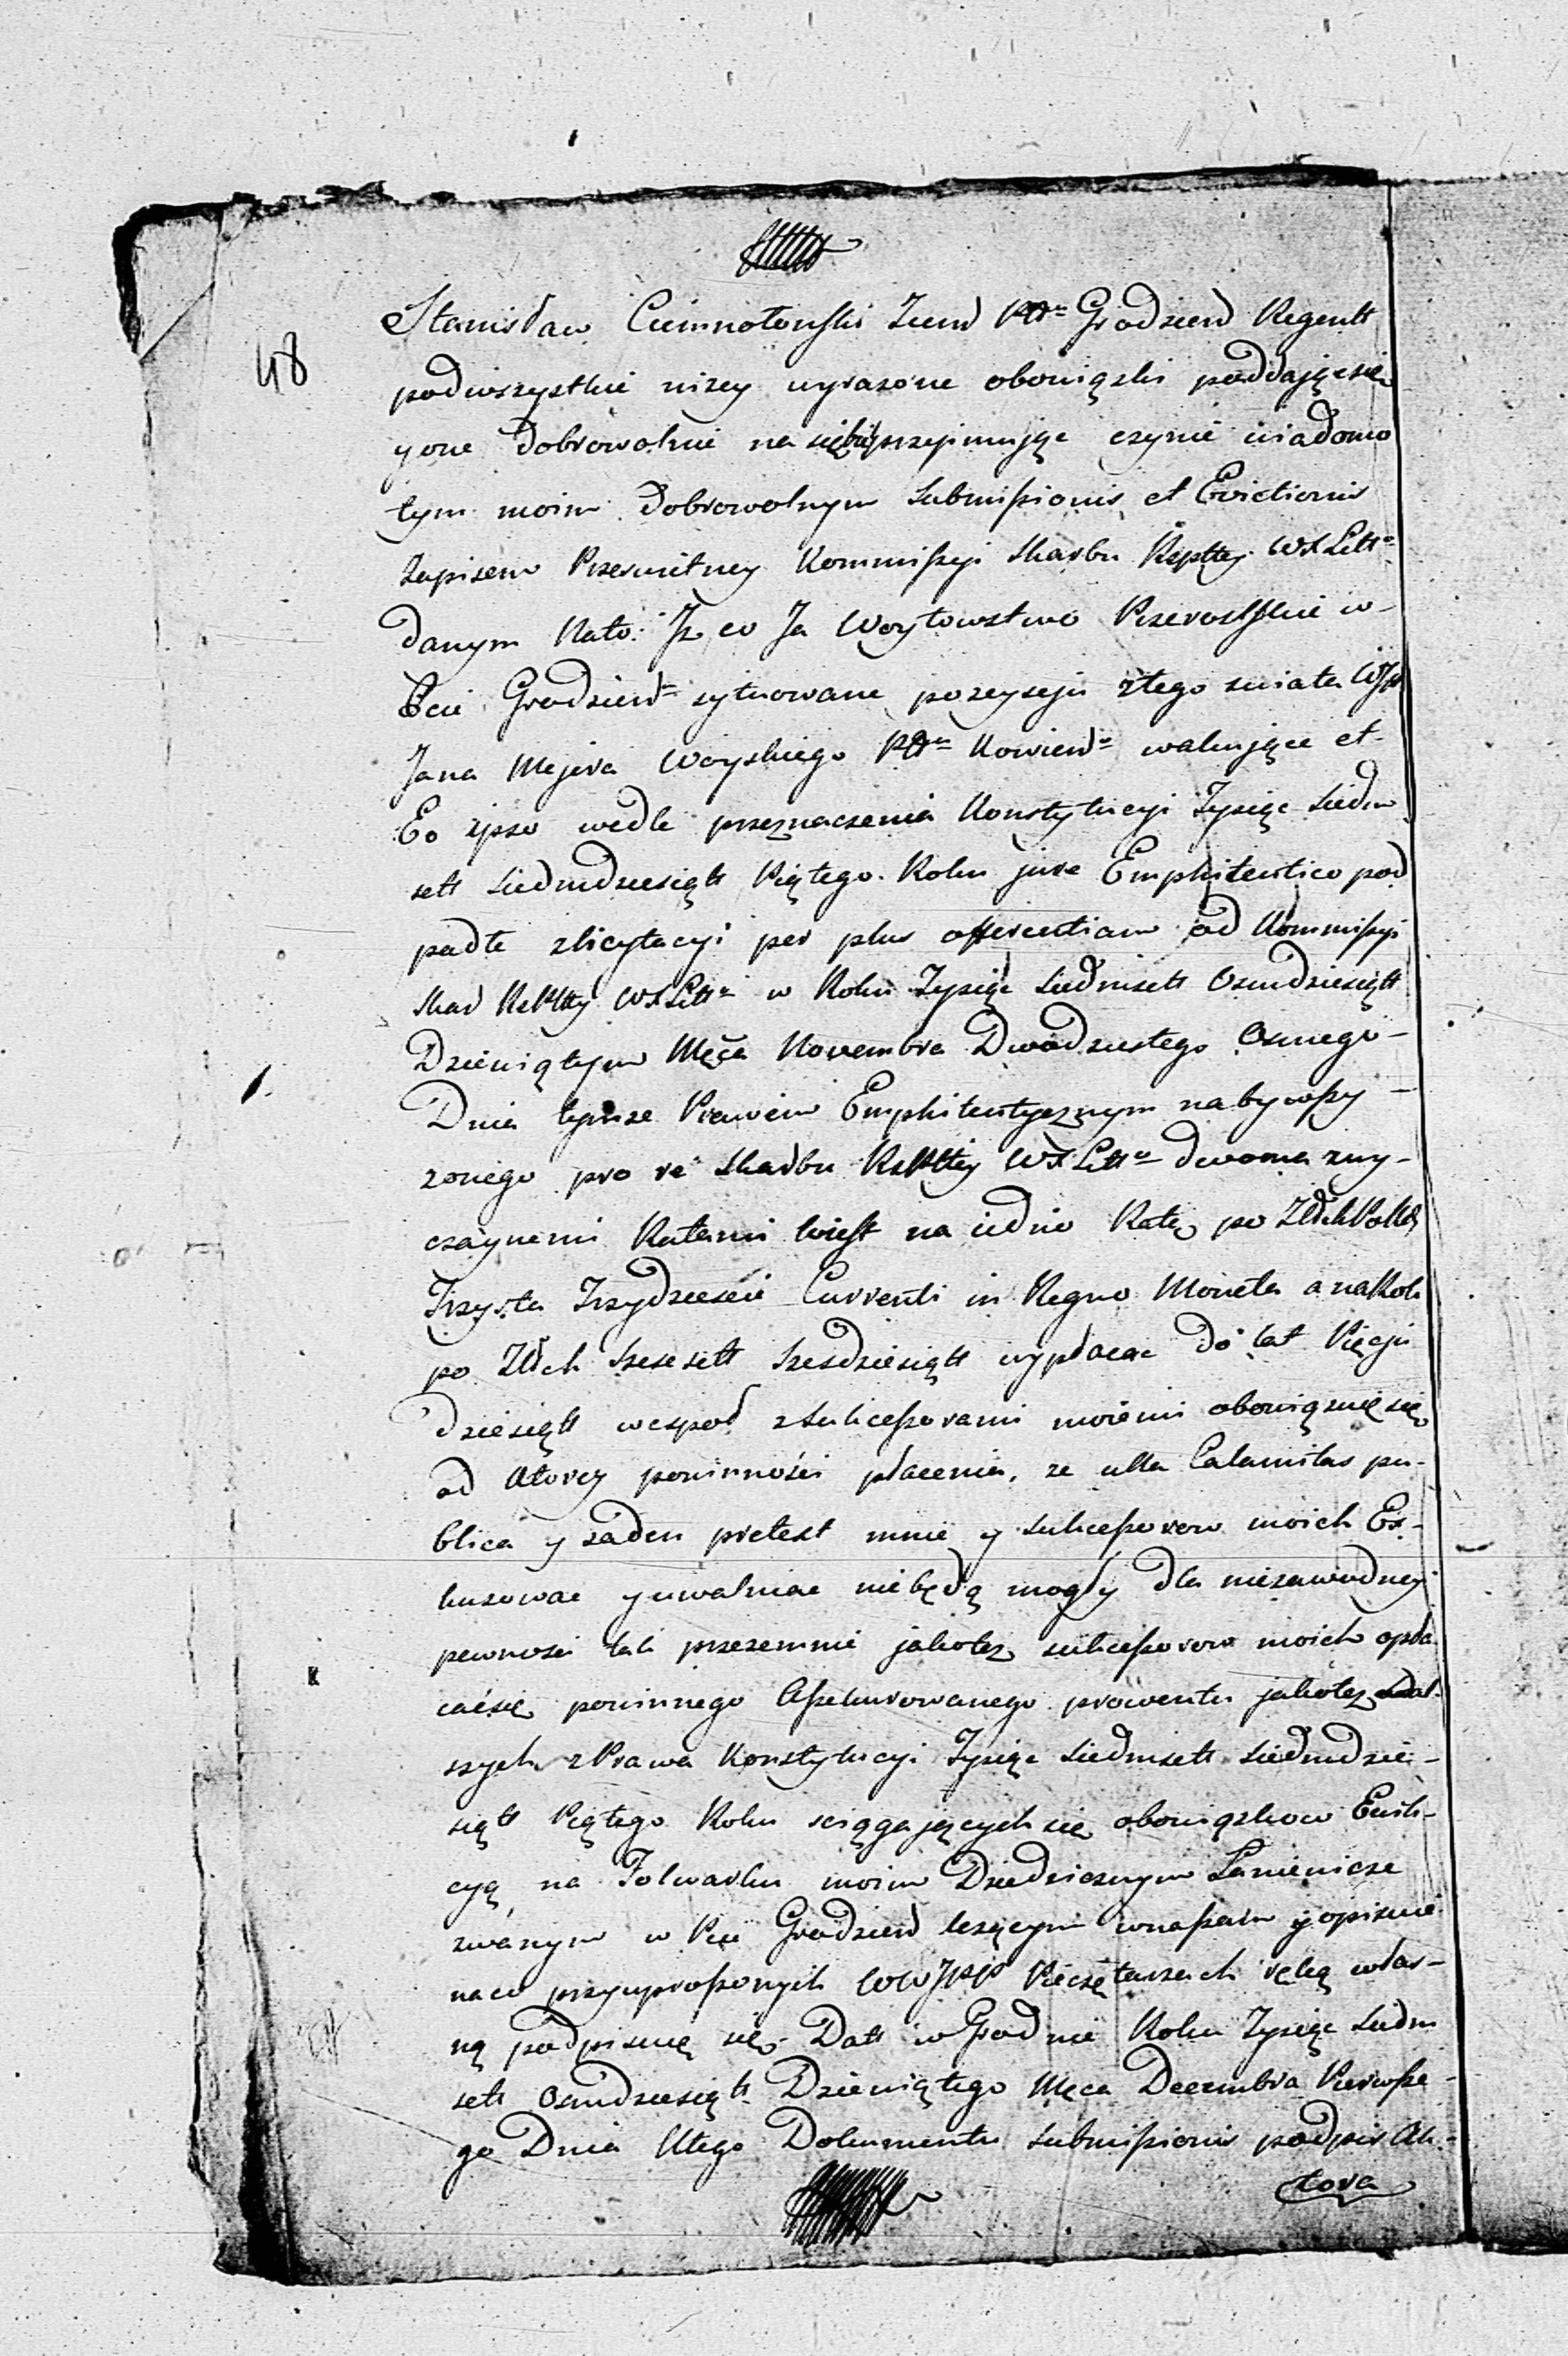 48
Stanisław Ciemnołonski Ziemd Pttu Grodzień Regentt
podwszystkie nizey wyrazone obowiązki poddającsię
yone Dobrowolnie na siębie przyimując czynię wiadomo
tym moim Dobrowolnym Submissionis et Evictionis
Zapisem Prześwietney Kommissyi Skarbu Rzpttey WXLitt°
danym Nato: Jż co Ja Woytowstwo Przerosłskie w-
Pcie Grodzień sytuowane pozeyściu ztego swiata WJP
Jana Mejera Woyskiego Pttu Kowień wakujące et
Eo ipso wedle przeznaczenia Konstytucyi Tysiąc Siedm
sett Siedmdziesiątt Piątego Roku jure Emphiteutico pod
padłe zlicytacyi per plus offerentiam od Kommissyi
Skar RzPttey WXLitt° w Roku Tysiąc Siedmsett Osmdziesiątt
Dziewiątym Męca Novembra Dwódziestego Osmego-
Dnia tymże Prawem Emphiteutycznym nabywszy -
zonego pro re Skarbu RzPttey WXLitt° dwoma zwy-
czaynemi Ratami toiest na iedno Ratę po ZłłchPolkh
Trzysta Trzydzieście Currenti in Regno Moneta a naRok
po Złłch Szescsett Szesdziesiątt wypłacac do lat Pięciu
dziesiątt wespoł zSukcessorami moiemi obowiązuię się
od ktorey powinności płacenia, ze ulla Calamitas pu-
blica y żaden pretext mnie y Sukcessorow moich Ex-
kuzowac y uwalniac niebędą mogły dla niezawodney
pewnosci tak przezemnie jakotez sukcessorow moich opła
caćsię powinnego Assekurowanego prowentu jakotez dal-
szych zPrawa Konstytucyi Tysiąc Siedmsett Siedmdzie-
siątt Piątego Roku sciągających się obowiązkow Ewik-
cyą na Folwarku moim Dziedzicznym Łanienicze
zwanym w Pcie Grodzień leżącym wnaszam y opisuie
naco przyuproszonych WWJPP Pieczętarzach ręką włas-
ną podpisuię się. Datt w Grodnie Roku Tysiąc Siedm
sett Osmdziesiątt Dziewiątego Męca Decembra Pierwsze-
go Dnia Utego Dokumentu Submissionis podpis Ak-
tora